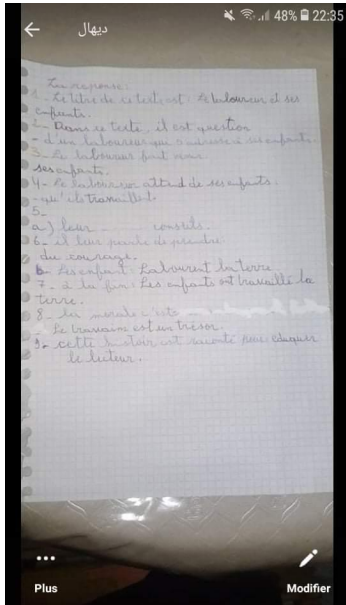 48% 22:35
ديهال
La reponse:
1- Le titre de ce texte est: Le laboureur et ses
enfants.
2- Dans ce texte, il est question
- d'un laboureur qui s'adresse à ses enfants.
3- Le laboureur fait venir
ses enfants.
4- Le laboureur attend de ses enfants.
- qu'ils travaillent
5-
a) leur conseils.
6- il leur parle de prendre
du courage.
b- Les enfant Labourent la terre
7- à la fin: Les enfants ont travaillé la
terre.
8- la morale c'est
Le travaim est un trésor.
9- cette histoir est raconté pour eduquer
le lecteur.
Plus
Modifier